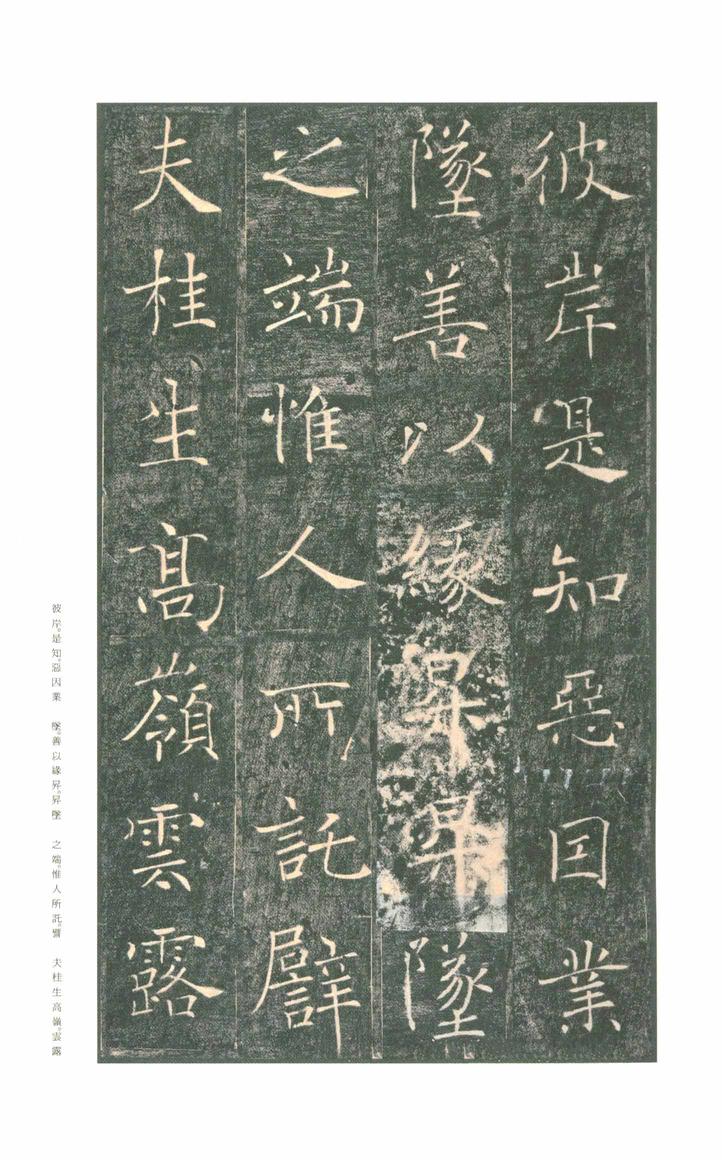 彼岸是知惡因業
墜善以緣昇昇墜
之端惟人所託譬
夫桂生高嶺雲露
彼岸。是知。惡因業　墜。善以緣昇。昇墜　之端。惟人所託。譬　夫桂生高嶺。雲露